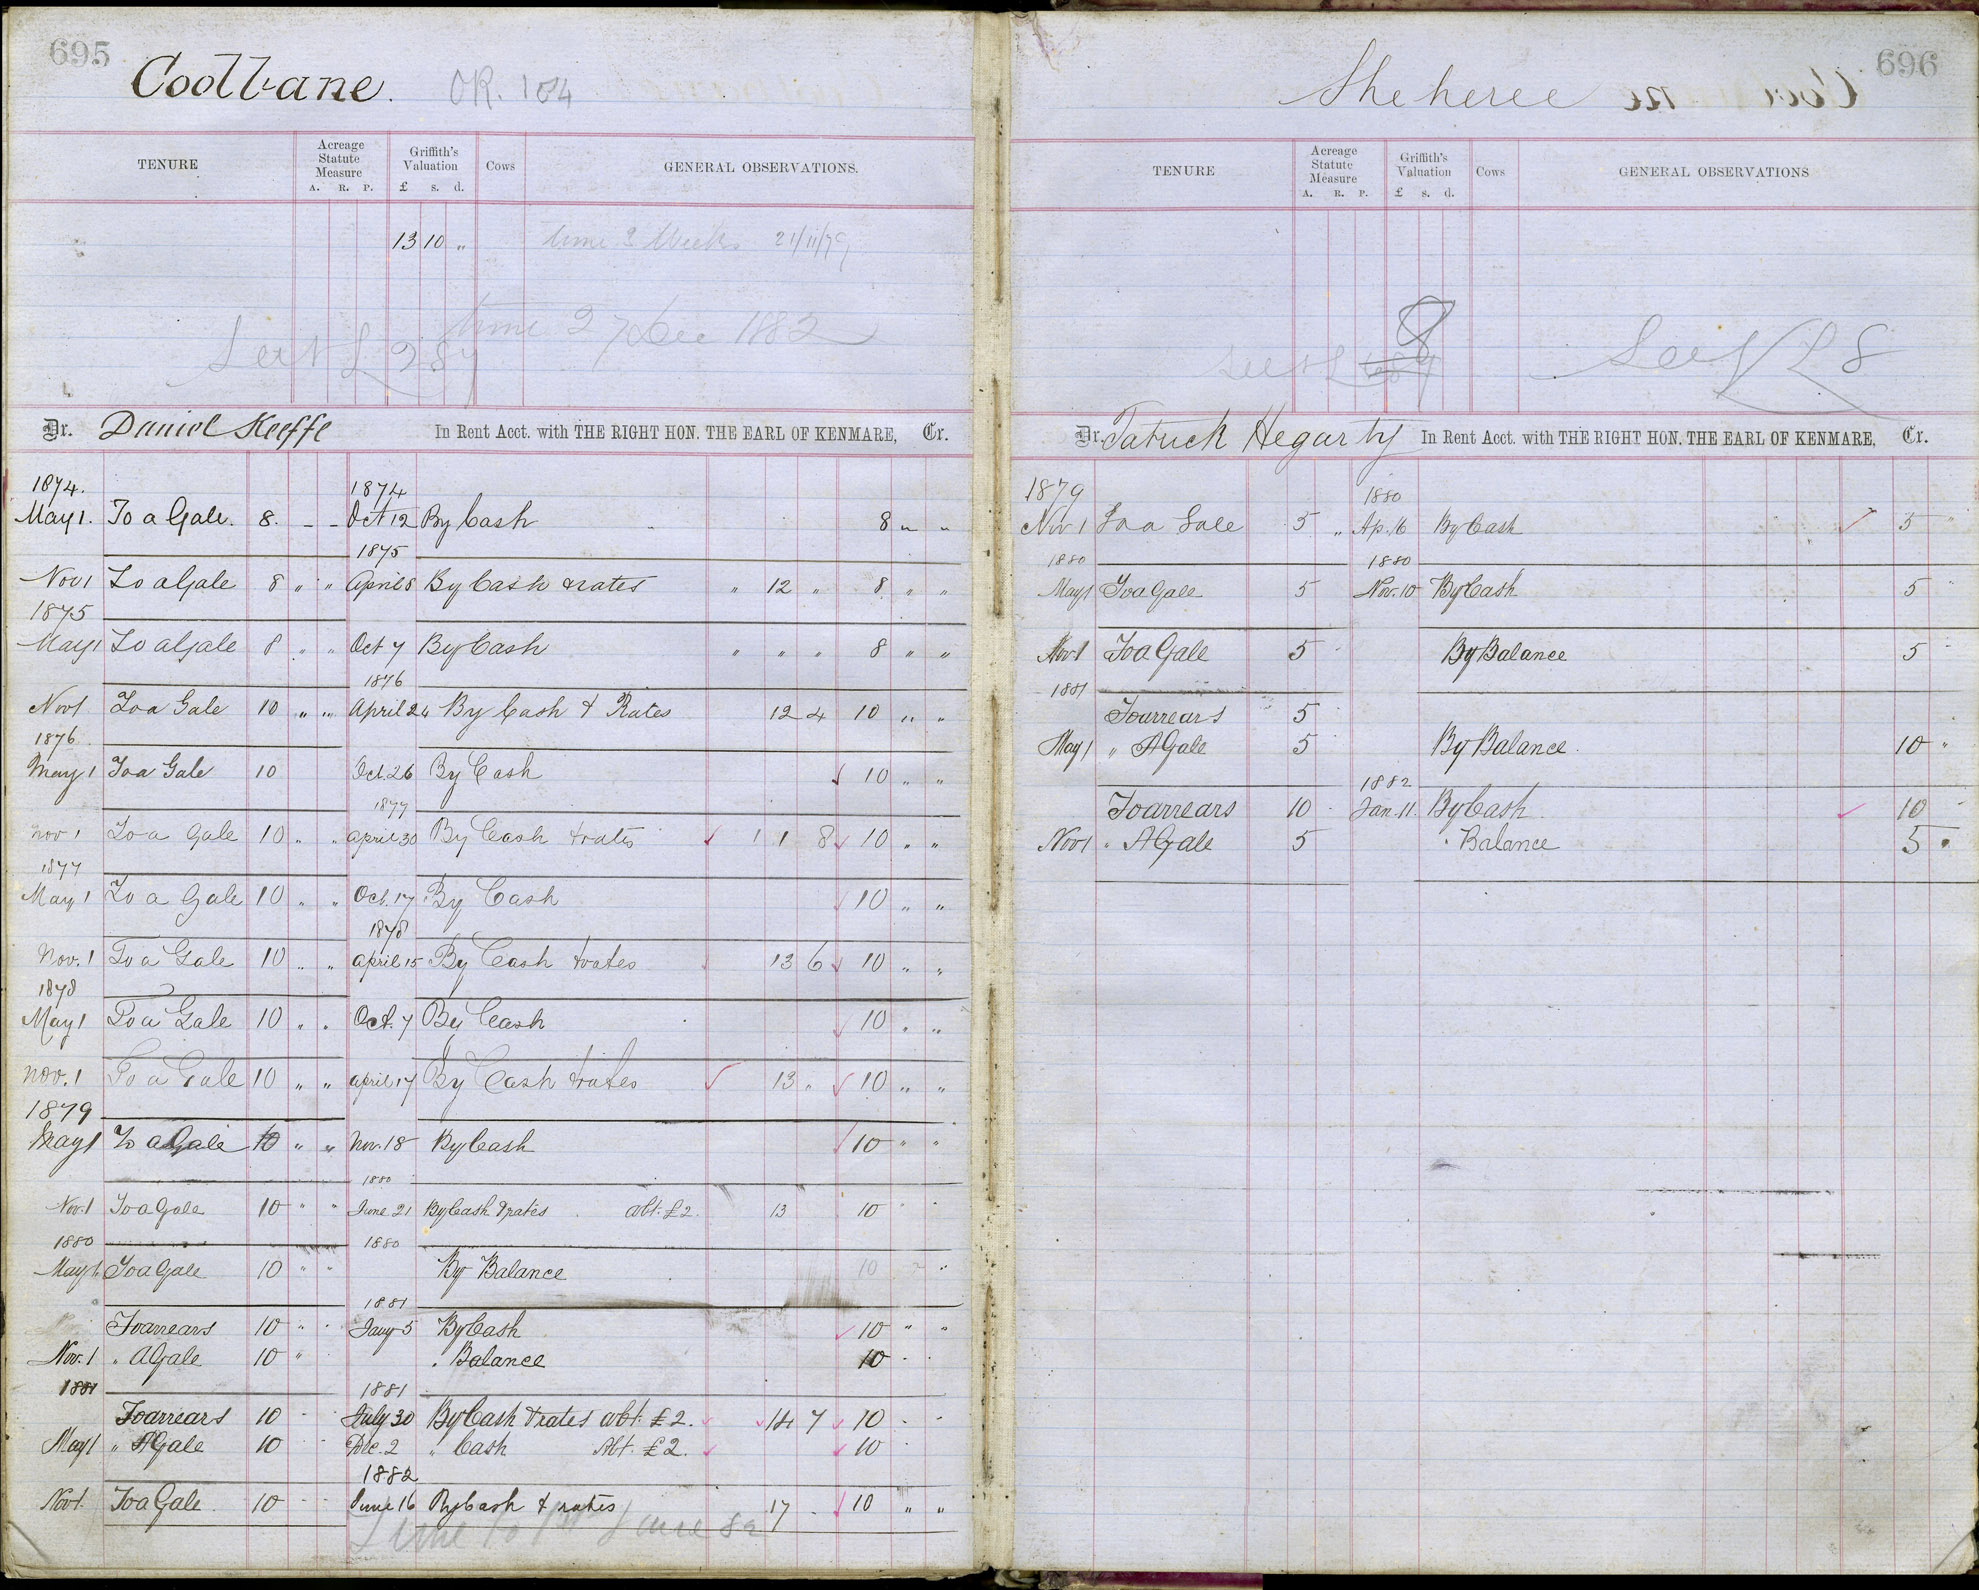 695
Coolbane. OR. 104
TENURE Acreage Statute Measure A. R. P. Griffith's Valuation £ s. d. Cows GENERAL OBSERVATIONS.
13 10 " time 3 Weeks 21/11/79
time 27 Dec 1882
Dr. Daniel Keeffe In Rent Acct. with THE RIGHT HON. THE EARL OF KENMARE, Cr.
1874. 1874
May 1. To a Gale. 8. - - Oct 12 By Cash 8 " "
1875
Nov 1 To a Gale 8 " " April 8 By Cash & rates " 12 " 8 " "
1875
May 1 To a Gale 8 " " Oct 7 By Cash " " " 8 " "
1876
Nov 1 To a Gale 10 " " April 24 By Cash & Rates 12 4 10 " "
1876
May 1 To a Gale 10 Oct. 26 By Cash 10 " "
1877
Nov 1 To a Gale 10 " " April 30 By Cash & rates 1 1 8 10 " "
1877
May 1 To a Gale 10 " " Oct. 17 By Cash 10 " "
1878
Nov. 1 To a Gale 10 " " April 15 By Cash & rates 13 6 10 " "
1878
May 1 To a Gale 10 " " Oct. 7 By Cash 10 " "
Nov. 1 To a Gale 10 " " April 17 By Cash & rates 13 " 10 " "
1879
May 1 To a Gale 10 " " Nov. 18 By Cash 10 " "
1880
Nov. 1 To a Gale 10 " " June 21 By Cash & rates abt. £2 13 10 " "
1880 1880
May 1. To a Gale 10 " " By Balance 10 " "
1881
To arrears 10 " " Jany 5 By Cash 10 " "
Nov. 1 " A Gale 10 " " Balance 10 " "
1881 1881
To arrears 10 " " July 30 By Cash & rates abt. £2. 14 7 10 " "
May 1 " A Gale 10 Dec. 2 " Cash Abt. £2. 10 "
1882
Nov 1. To a Gale. 10 " " June 16 By Cash & rates 17 . 10 " "
Time to June 82
696
Sheheree
TENURE Acreage Statute Measure A. R. P. Griffith's Valuation £ s. d. Cows GENERAL OBSERVATIONS
8
See L 8
Dr. Patrick Hegarty In Rent Acct. with THE RIGHT HON. THE EARL OF KENMARE, Cr.
1879 1880
Nov 1 To a Gale 5 " Ap. 16 By Cash 5 "
1880 1880
May 1 To a Gale 5 Nov. 10 By Cash 5 "
Nov. 1 To a Gale 5 " By Balance 5 "
1881
To arrears 5
May 1 " A Gale 5 By Balance 10 "
1882
To arrears 10 " Jan. 11. By Cash 10 "
Nov 1 " A Gale 5 " Balance 5 "